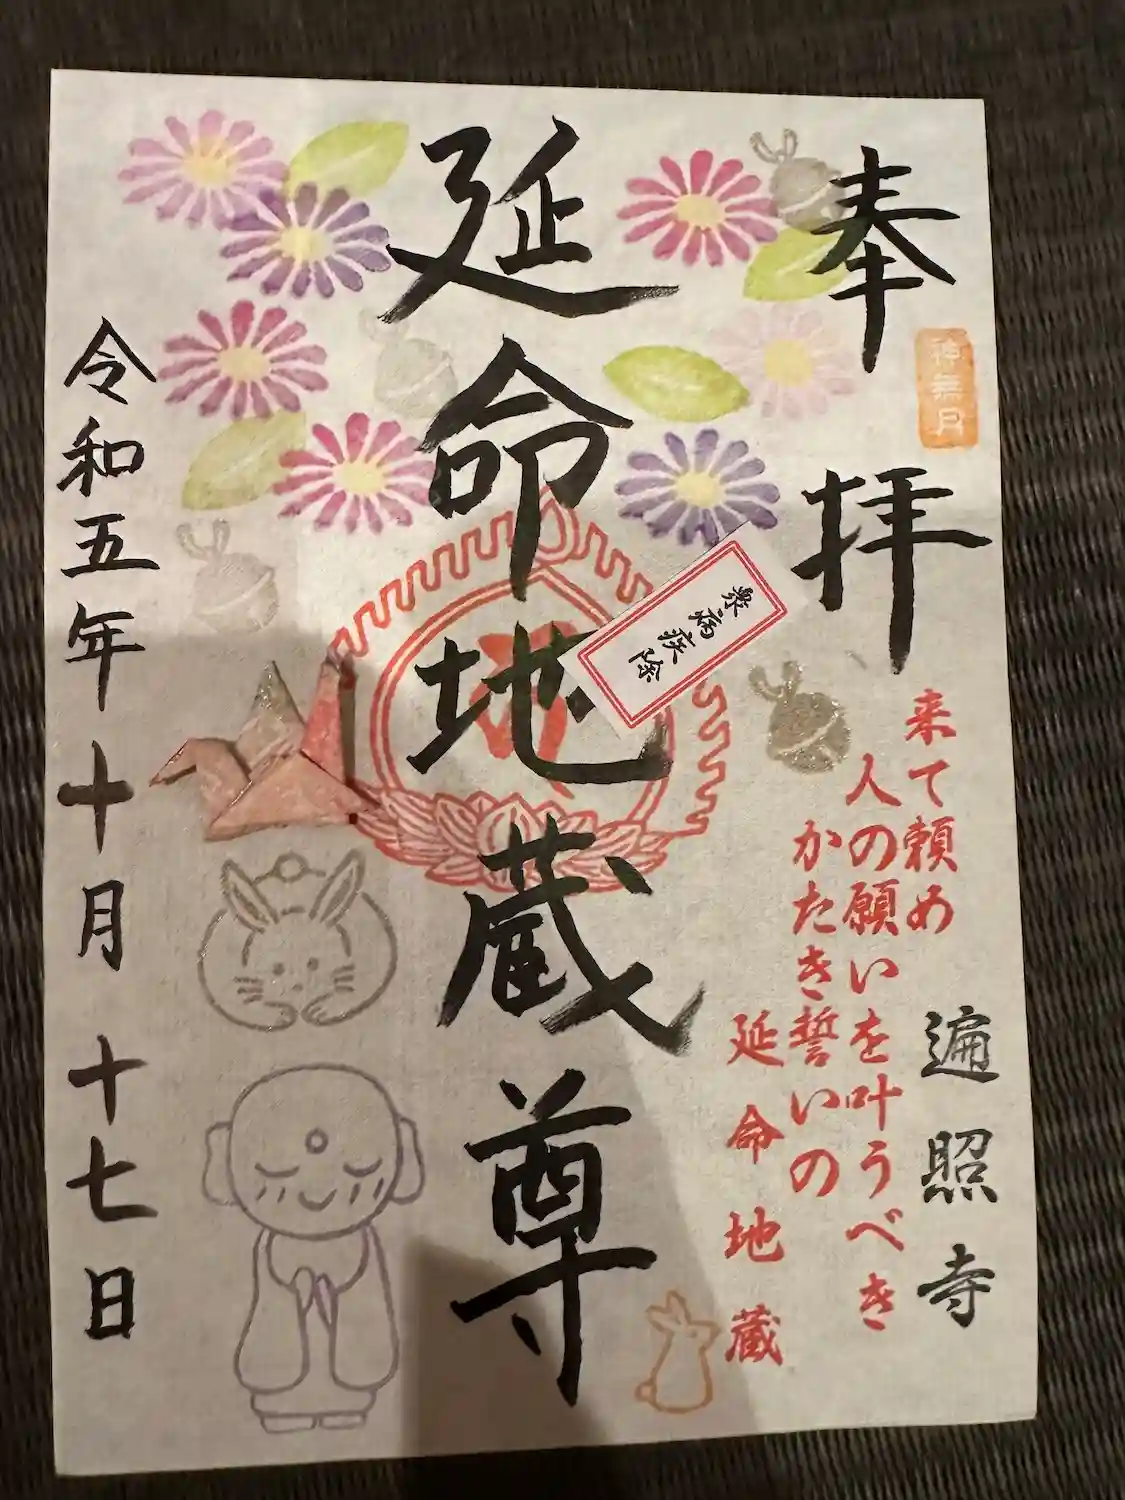 奉拝
神無月
遍照寺
来て頼め
人の願いを叶うべき
かたき誓いの
延命地蔵
衆病疾除
延命地蔵尊
令和五年十月十七日